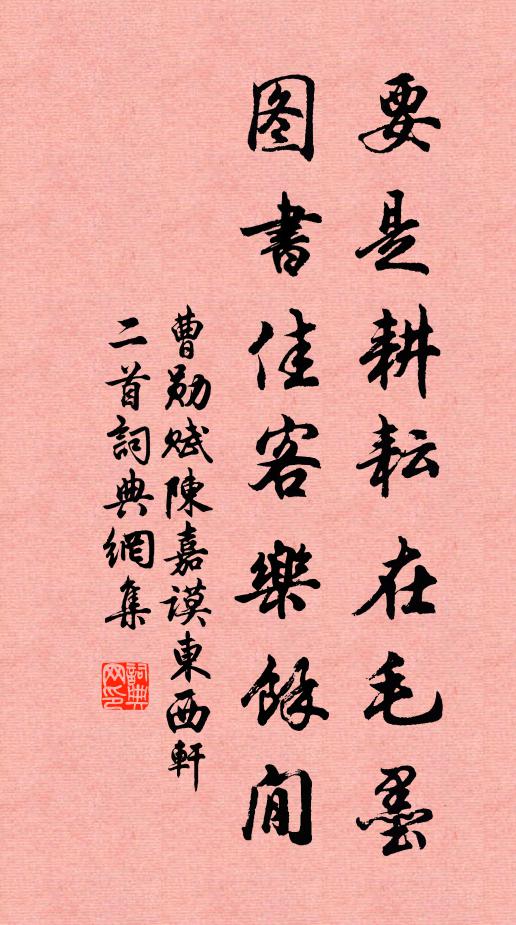 要是耕耘在毛墨
图書佳客樂餘閒
曹勛賦陳嘉謨東西軒
二首詞典網集
詞典
网印